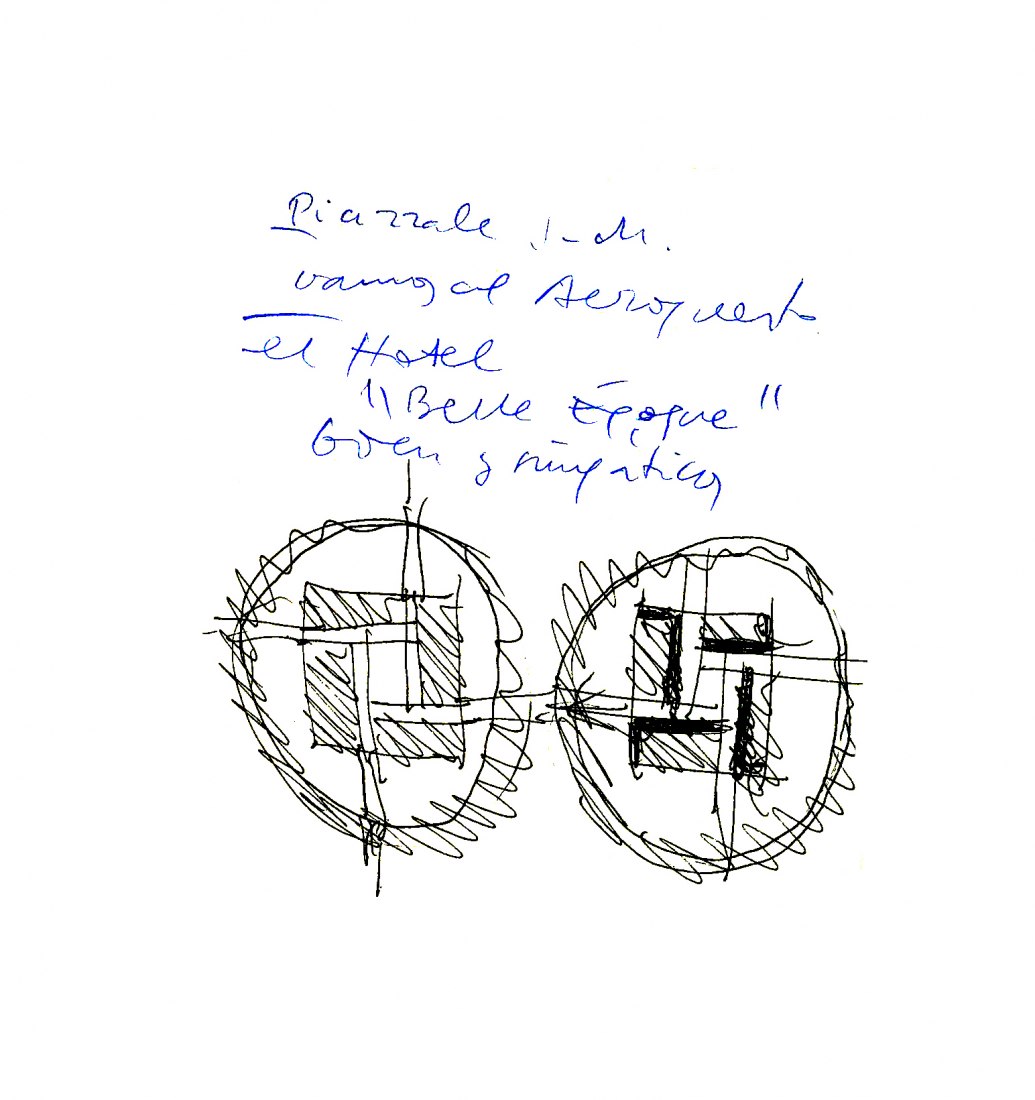 Piazzale
vamos al Aeropuerto
el Hotel
"Belle Époque"
y simpático